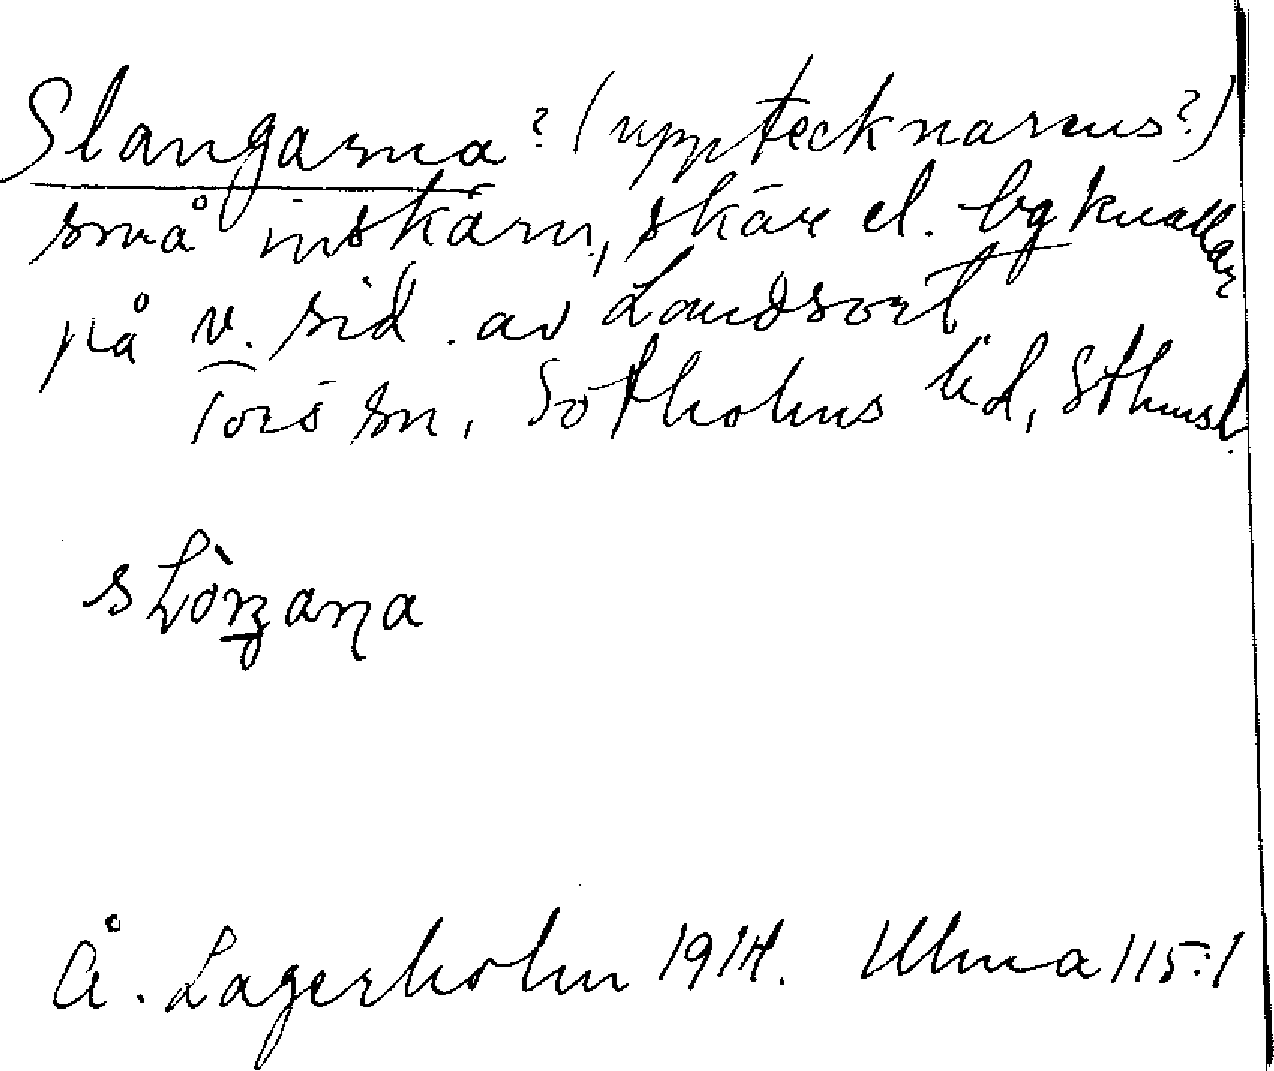 Slangarna? (upptecknarens?)
små inskärn, skäre el. bgknallar
på v. sid. av Landsort
Torö sn, Sotholms hd, Sthmsl.
Å. Lagerholm 1914. Ulma 115:1